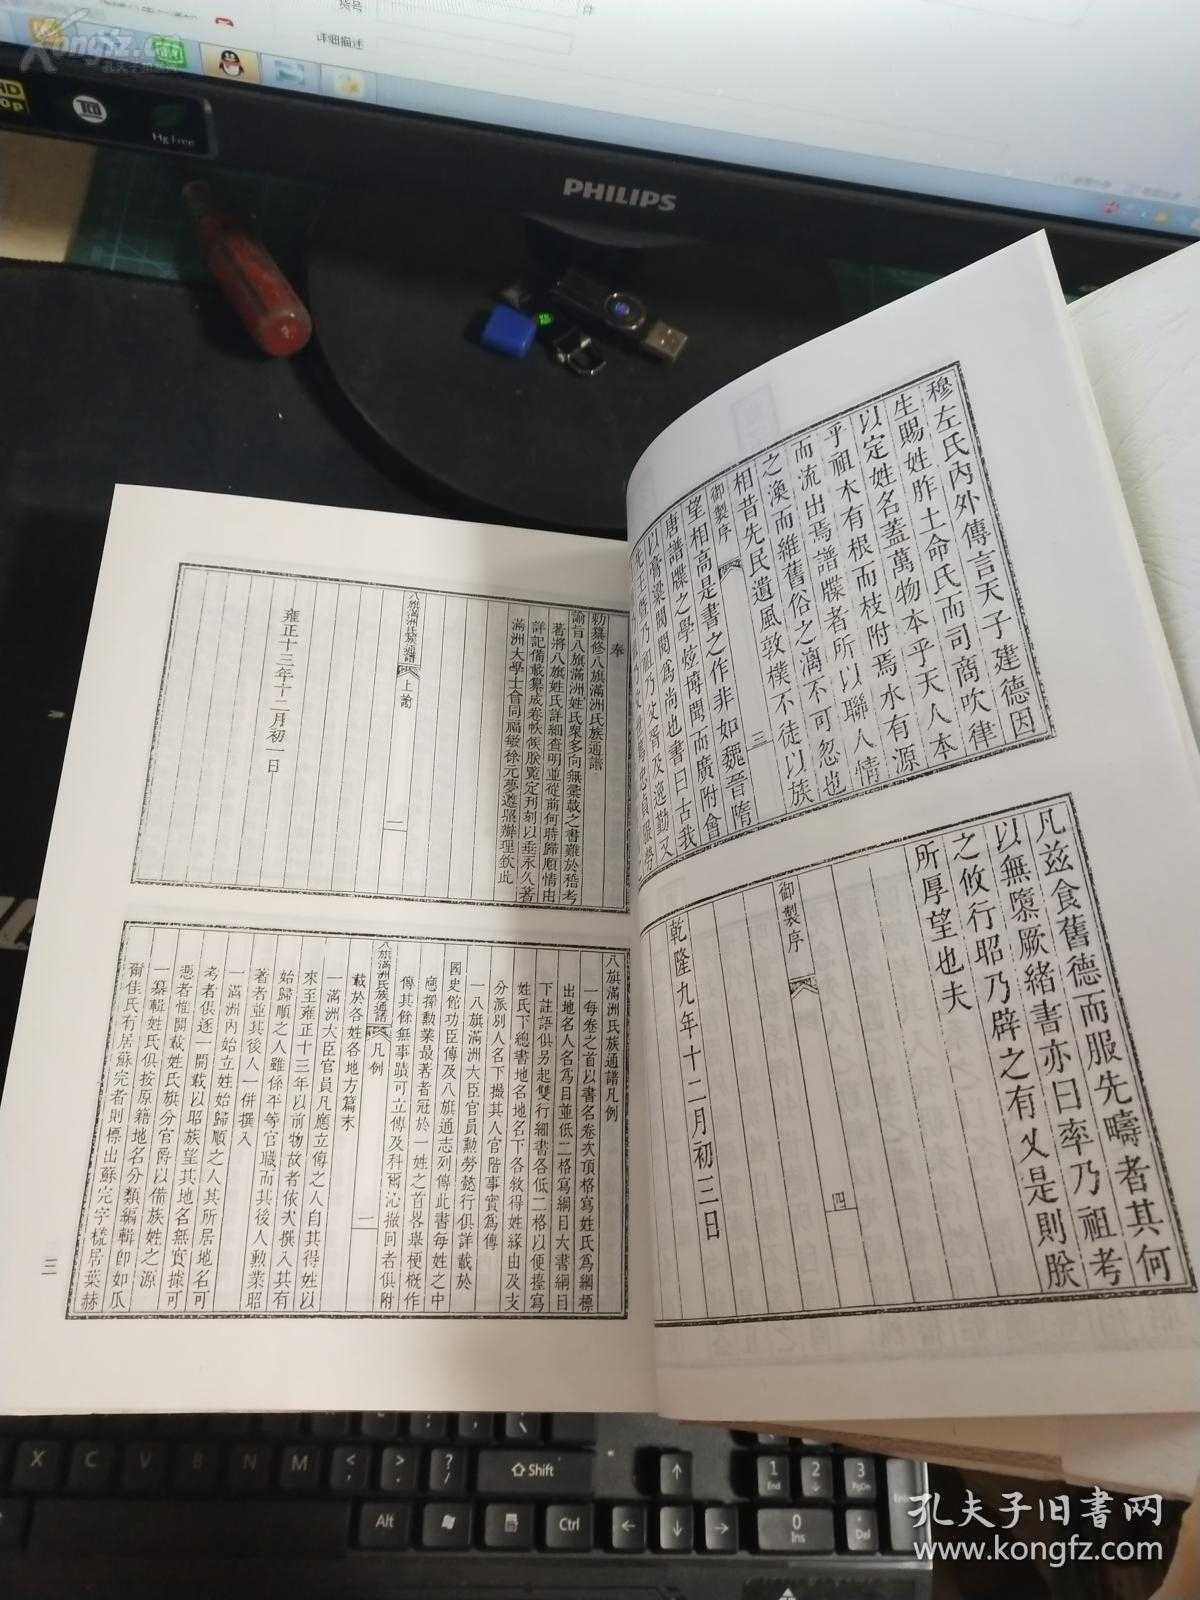 货号
件
详细描述
Kongfz.cn
孔夫子旧书网
HD
Hg Free
PHILIPS
穆左氏內外傳言天子建德因
生賜姓胙土命氏而司商吹律
以定姓名蓋萬物本乎天人本
乎祖木有根而枝附焉水有源
而流出焉譜牒者所以聯人情
之渙而維舊俗之漓不可忽也
相昔先民遺風敦樸不徒以族
御製序
三
望相高是書之作非如魏晉隋
唐譜牒之學炫博聞而廣附會
以膏粱閥閱爲尚也書曰古我
凡茲食舊德而服先疇者其何
以無隳厥緒書亦曰率乃祖考
之攸行昭乃辟之有乂是則朕
所厚望也夫
御製序
四
乾隆九年十二月初三日
奉
勅纂修八旗滿洲氏族通譜
諭旨八旗滿洲姓氏衆多向無彙載之書難於稽考
著將八旗姓氏詳細查明並從前何時歸順情由
詳記備載纂成卷帙候朕覽定刊刻以垂永久著
滿洲大學士會同福敏徐元夢遵照辦理欽此
八旗滿洲氏族通譜
上諭
一
雍正十三年十二月初一日
八旗滿洲氏族通譜凡例
一每卷之首以書名卷次頂格寫姓氏爲綱標
出地名人名爲目並低二格寫綱目大書綱目
下註語俱另起雙行細書各低二格以便擡寫
姓氏下總書地名地名下各敘得姓緣由及支
分派別人名下撮其人官階事實爲傳
一八旗滿洲大臣官員勳勞懿行俱詳載於
國史館功臣傳及八旗通志列傳此書每姓之中
應擇勳業最著者冠於一姓之首畧舉梗概作
傳其餘無事蹟可立傳及科爾沁撤回者俱附
八旗滿洲氏族通譜
凡例
一
載於各姓各地方篇末
一滿洲大臣官員凡應立傳之人自其得姓以
來至雍正十三年以前物故者依次撰入其有
始歸順之人雖係平等官職而其後人勳業昭
著者並其後人一併撰入
一滿洲內始立姓始歸順之人其所居地名可
考者俱逐一開載以昭族望其地名無實據可
憑者惟開載姓氏旗分官爵以備族姓之源
一纂輯姓氏俱按原籍地名分類編輯卽如瓜
爾佳氏有居蘇完者則標出蘇完字樣居葉赫
三
X
C
V
B
N
M
Shift
Alt
Ctrl
1
End
2
3
PgDn
0
Ins
Del
孔夫子旧书网
www.kongfz.com